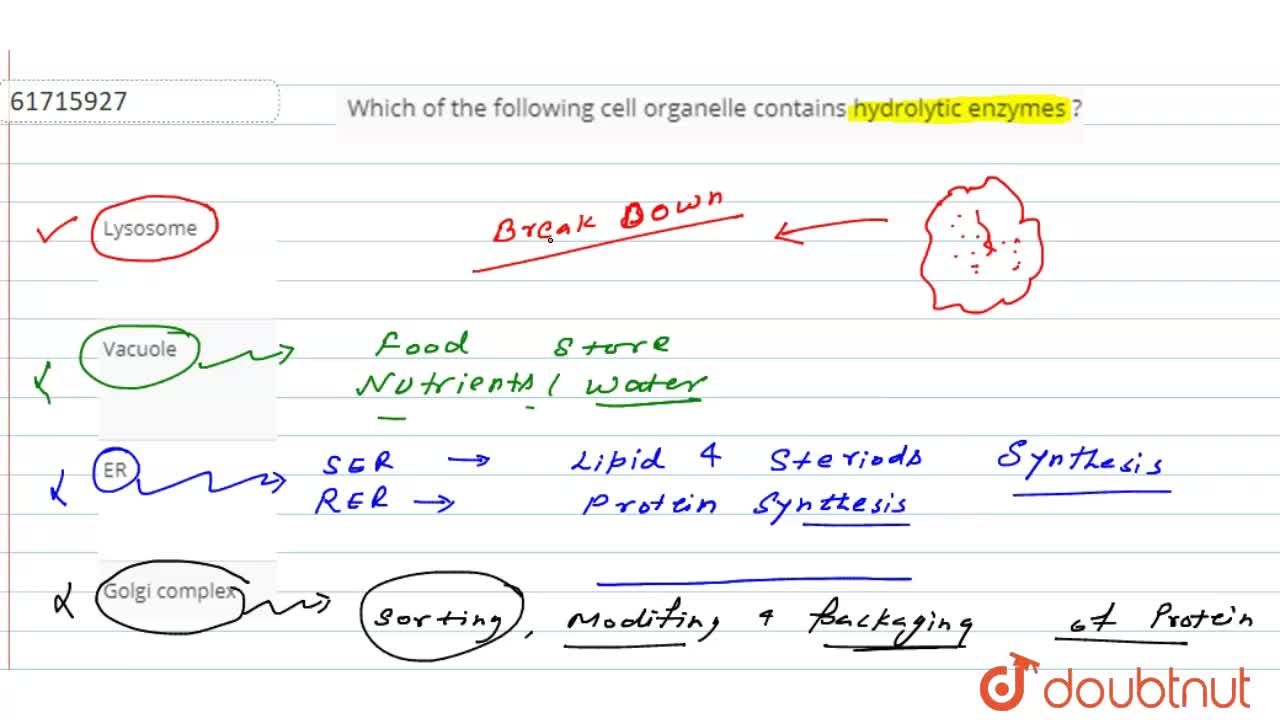 61715927
Which of the following cell organelle contains hydrolytic enzymes ?
Lysosome
Break Down
Vacuole
Food Store
Nutrients / water
ER
SER → Lipid & Steriods Synthesis
RER → Protein Synthesis
Golgi complex
Sorting, Modifing & Packaging of Protein
doubtnut